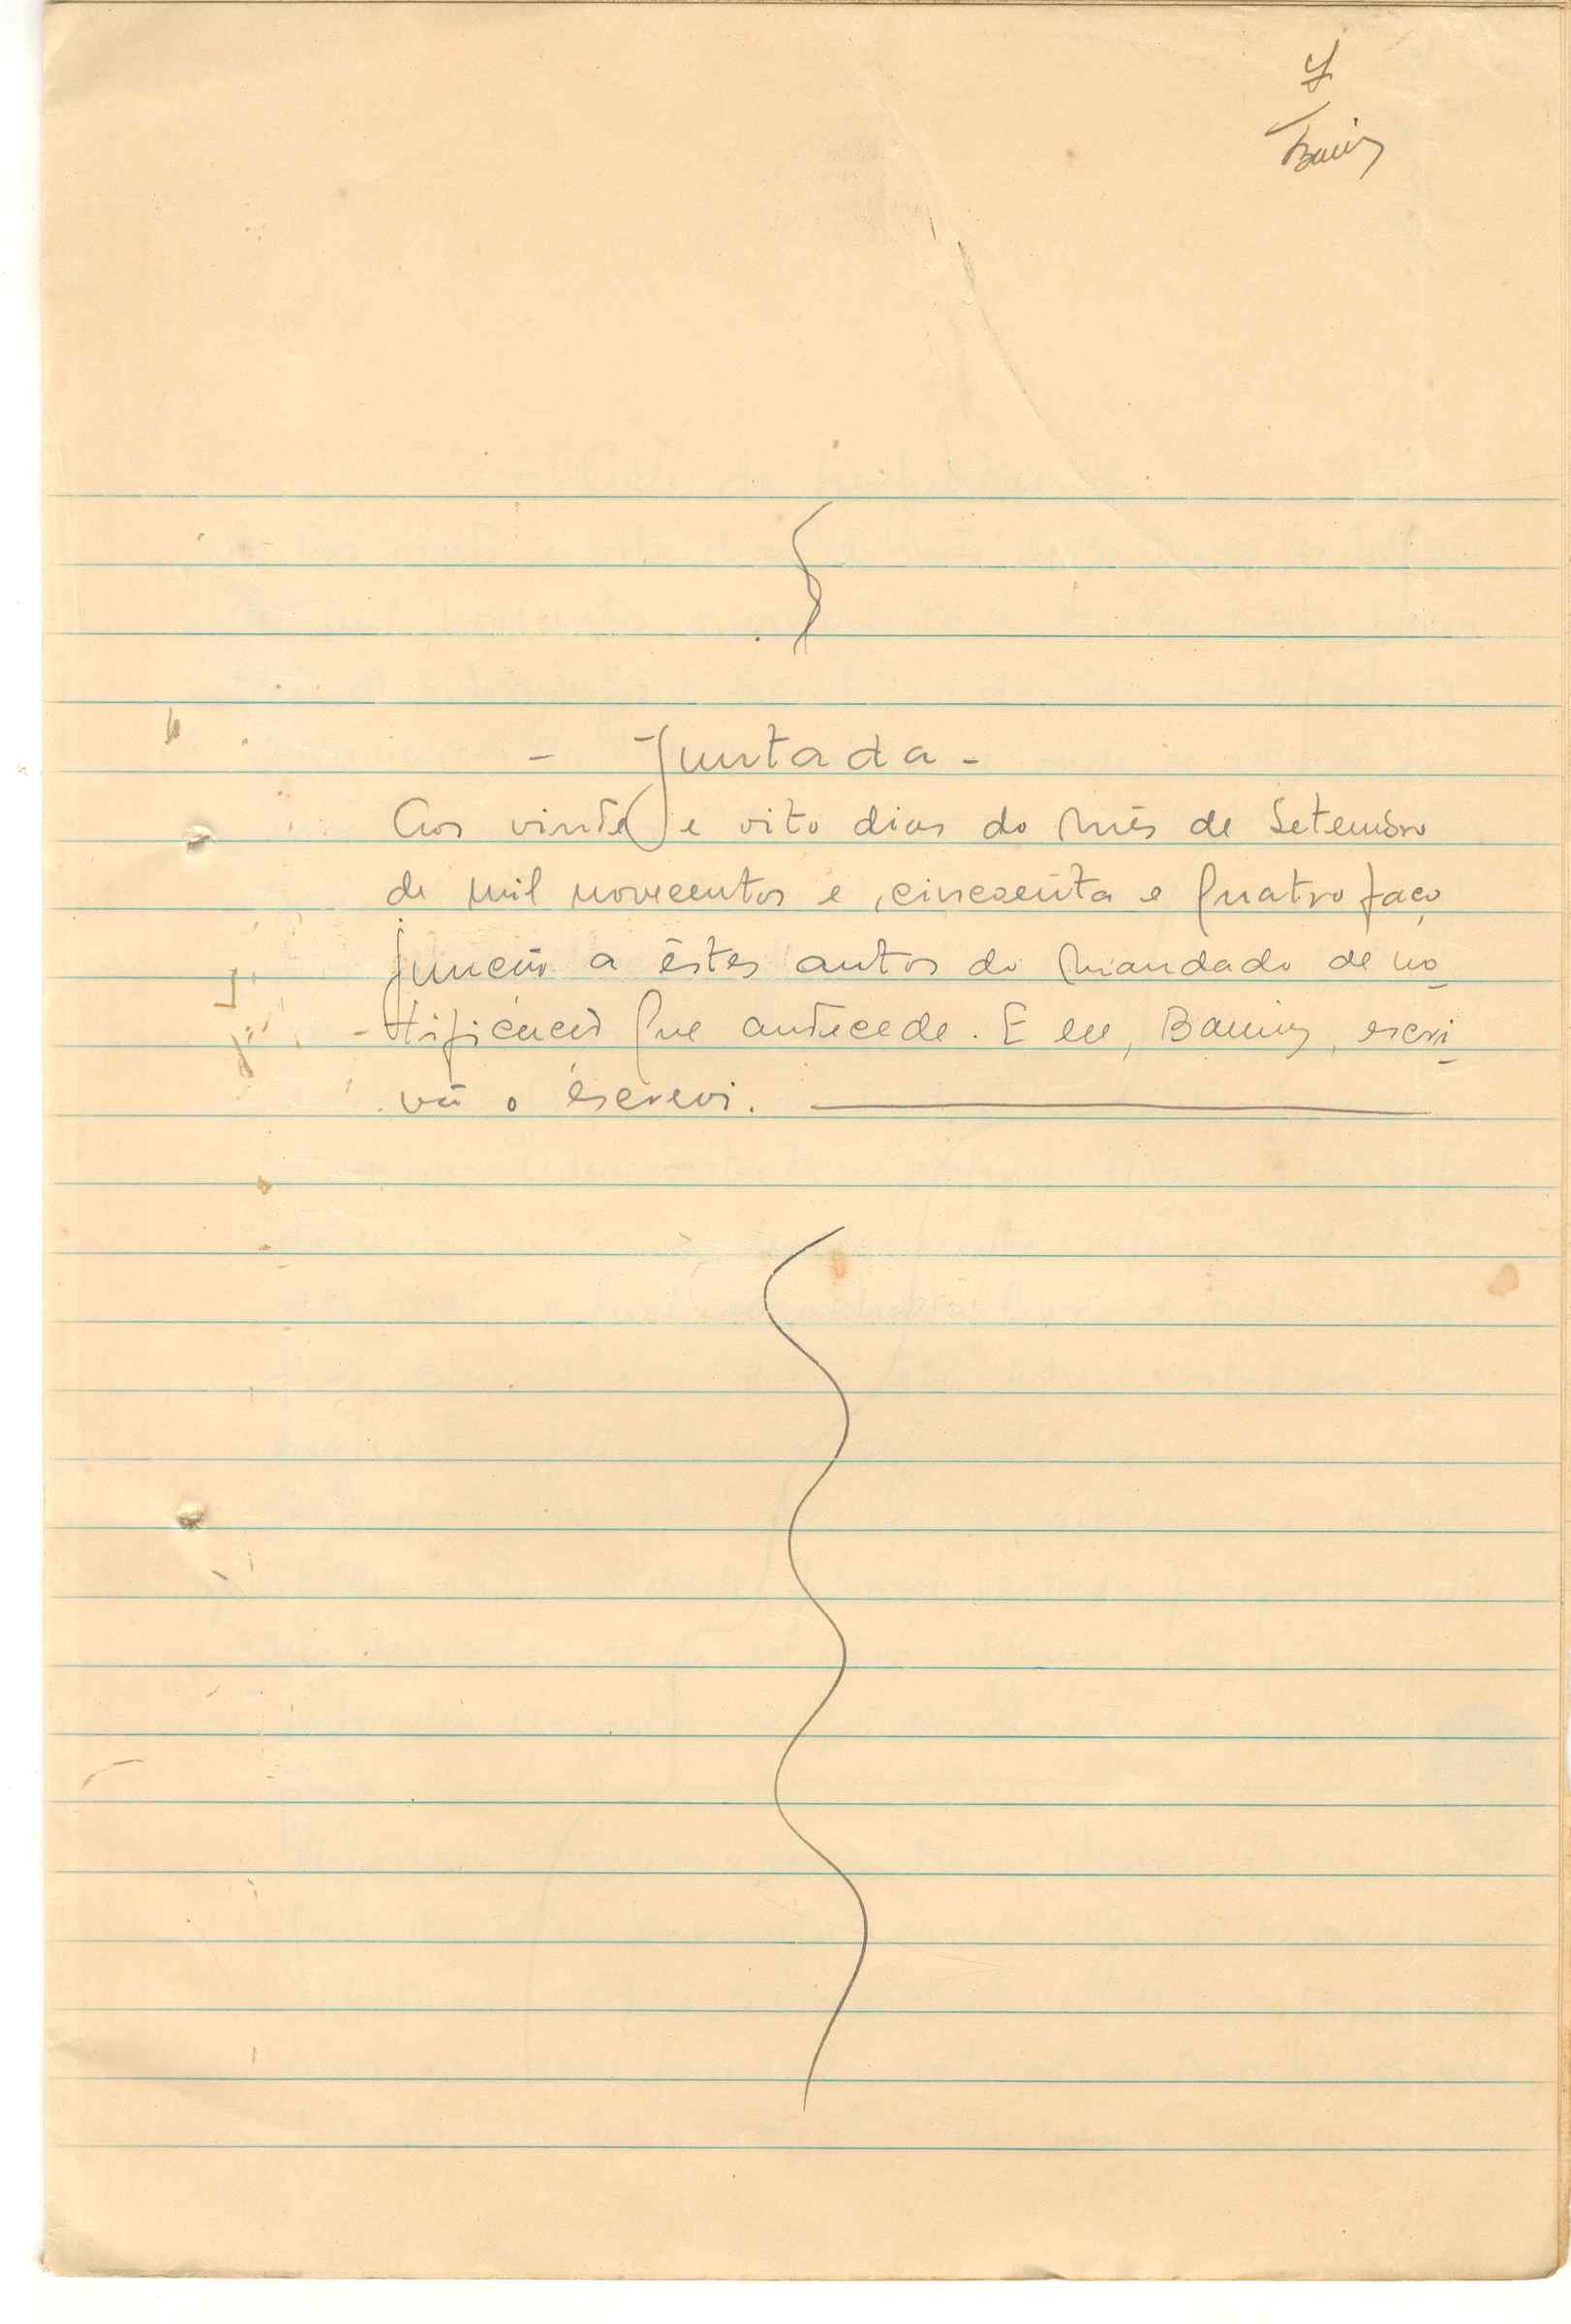 - Juntada -
Aos vinte e oito dias do mês de Setembro
de mil novecentos e cincoenta e quatro faço
junção a êstes autos do mandado de no-
tificação que antecede. E eu, escri-
vã o escrevi.